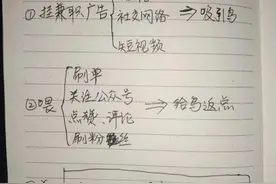 ①挂兼职广告 社交网络 ⇒吸引鸟
短视频
②喂 刷单
关注公众号 ⇒给鸟返点
点赞、评论
刷粉丝